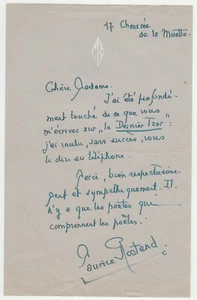 17 Chaussée
de la Muette.
Chère Madame.
J'ai été profondé-
ment touché de ce que vous
m'écrivez sur "le Dernier Tzar" :
j'ai voulu, sans succès, vous
le dire au téléphone.
Merci, bien respectueuse-
ment et sympathiquement. Il
n'y a que les poètes que
comprennent les poètes.
Maurice Rostand